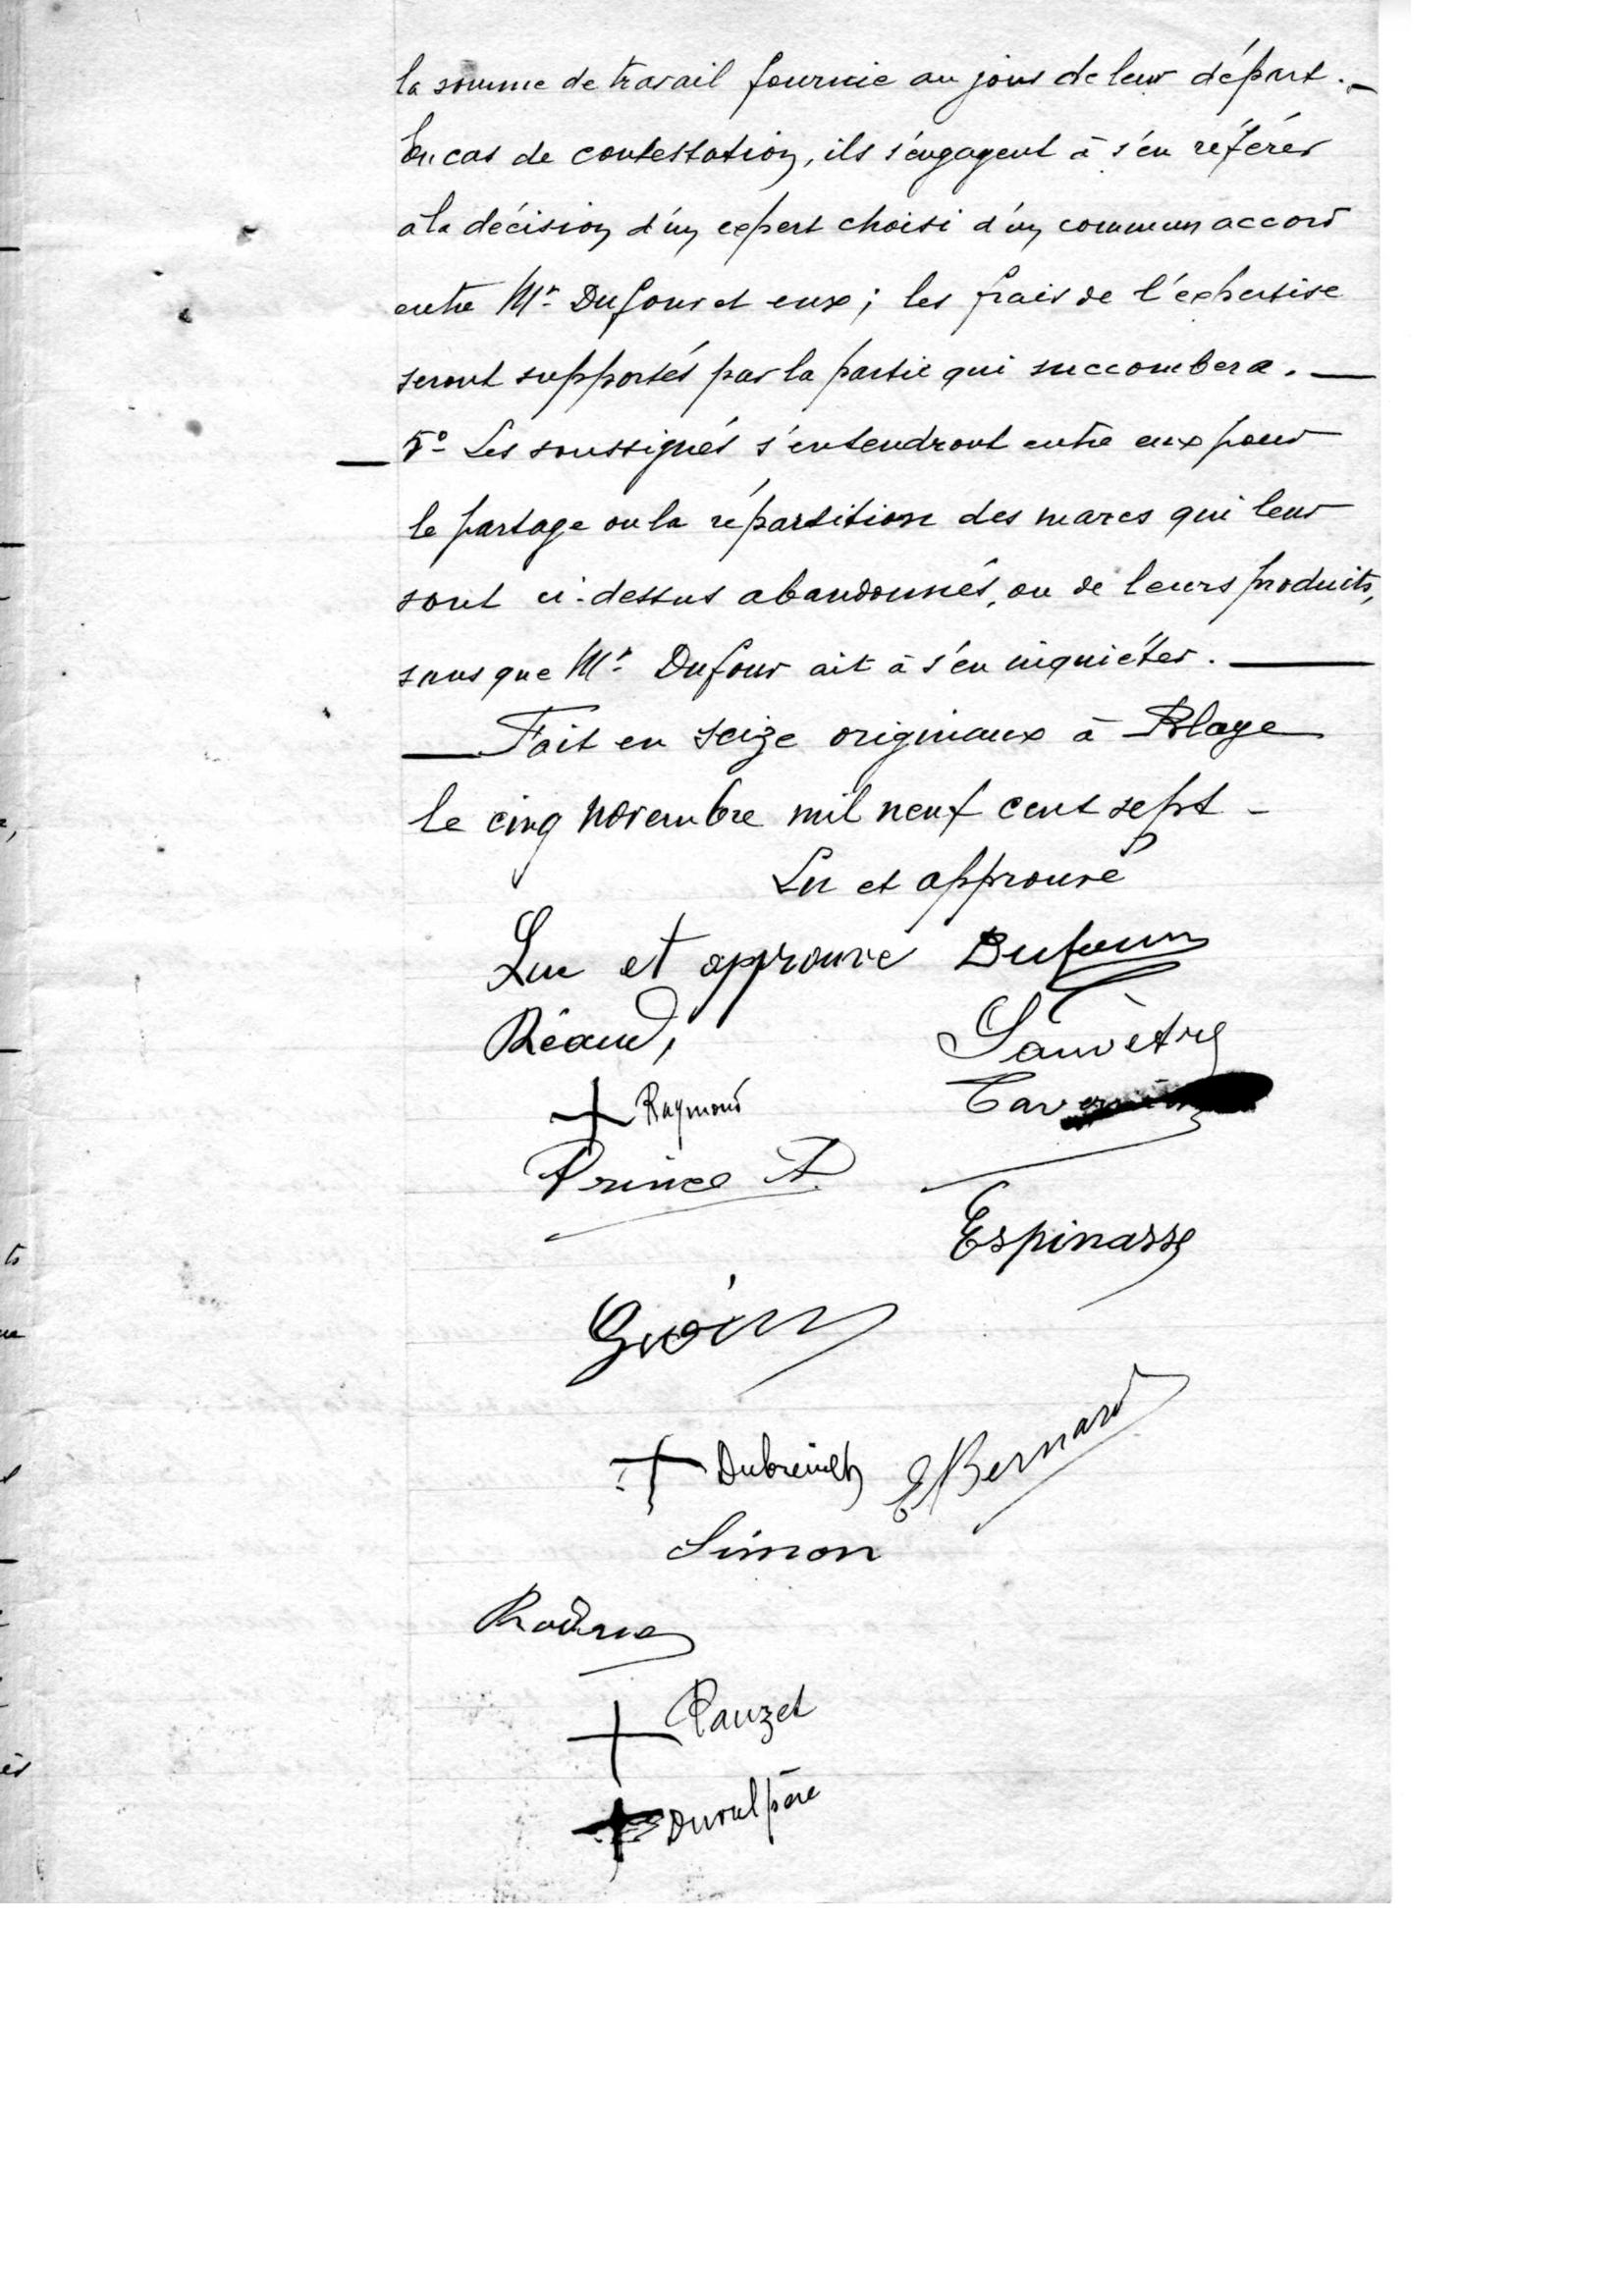 la somme de travail fournie au jour de leur départ. —
En cas de contestation, ils s'engagent à s'en référer
à la décision d'un expert choisi d'un commun accord
entre Mr. Dufour et eux ; les frais de l'expertise
seront supportés par la partie qui succombera. —
— 5° Les soussignés s'entendront entre eux pour
le partage ou la répartition des marcs qui leur
sont ci-dessus abandonnés, ou de leurs produits,
sans que Mr. Dufour ait à s'en inquiéter. —
— Fait en seize originaux à Blaye
le cinq novembre mil neuf cent sept -
Lu et approuvé
Lu et approuvé Dufour
Réaud, Sauvêtre
+ Raymond
Prince A.
Espinasse
+ Dubreuilh E Bernard
Simon
+ Pauzet
+ Duval père